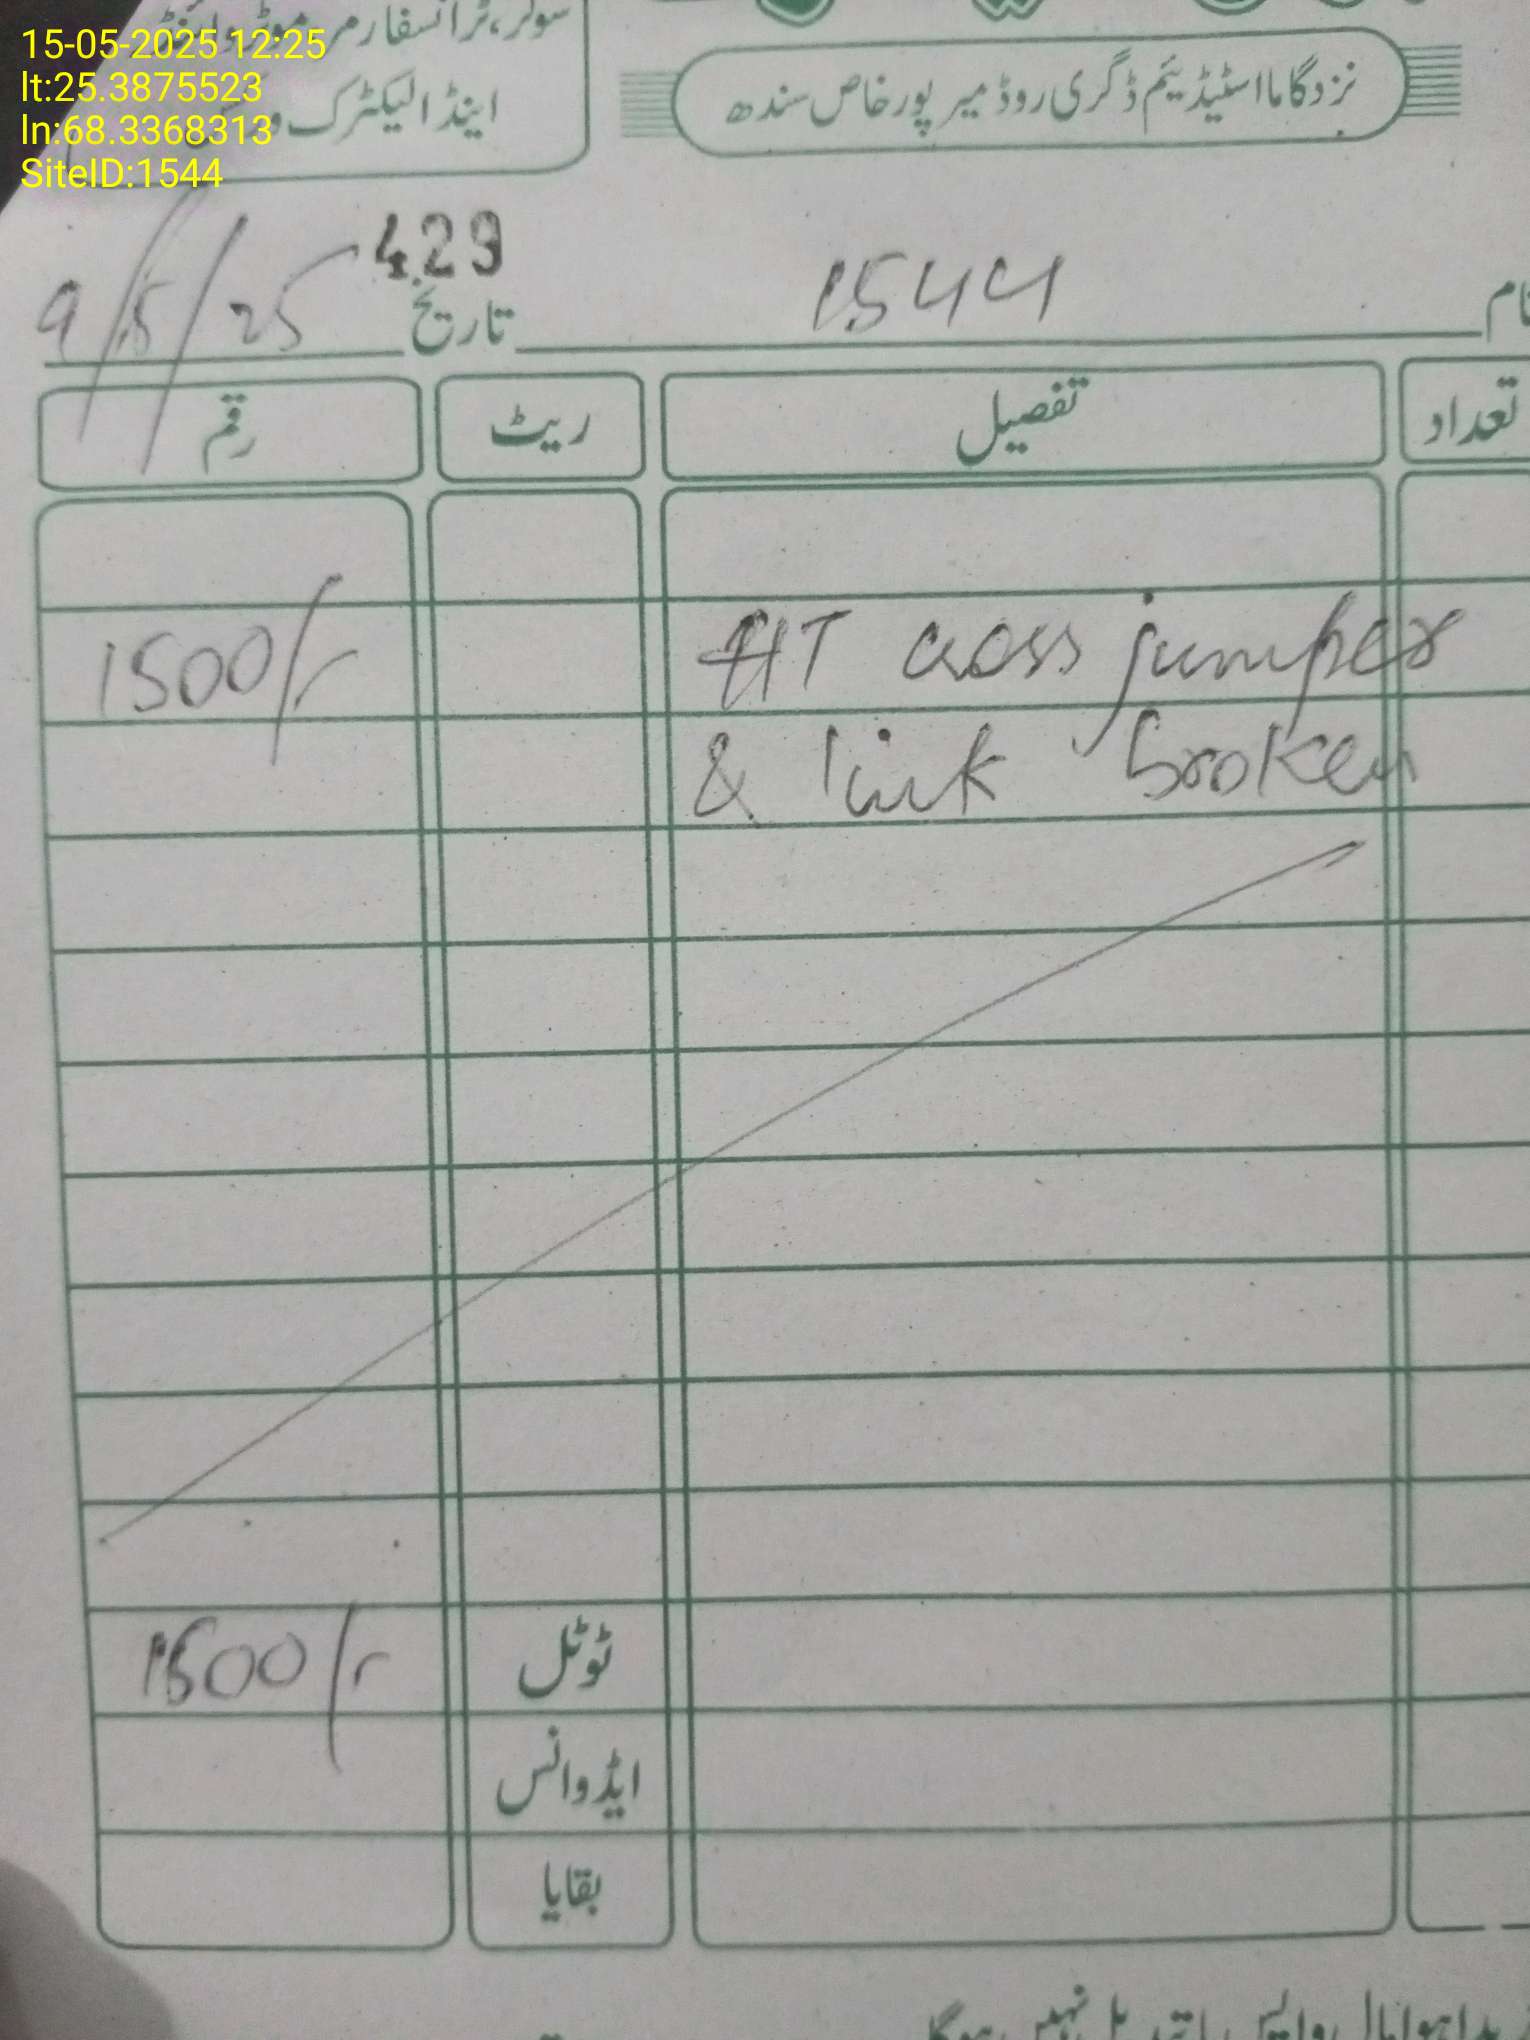 15-05-2025 12:25
lt:25.3875523
ln:68.3368313
SiteID:1544
سولر، ٹرانسفارمر، موٹر
اینڈ الیکٹرک
نزد گاما اسٹیڈیم ڈگری روڈ میر پور خاص سندھ
429
نام 1544 تاریخ 9/5/25
تعداد تفصیل ریٹ رقم
HT cross jumper 1500/-
& link broken
ٹوٹل 1500/-
ایڈوانس
بقایا
ہوا مال واپس یا تبدیل نہیں ہوگا